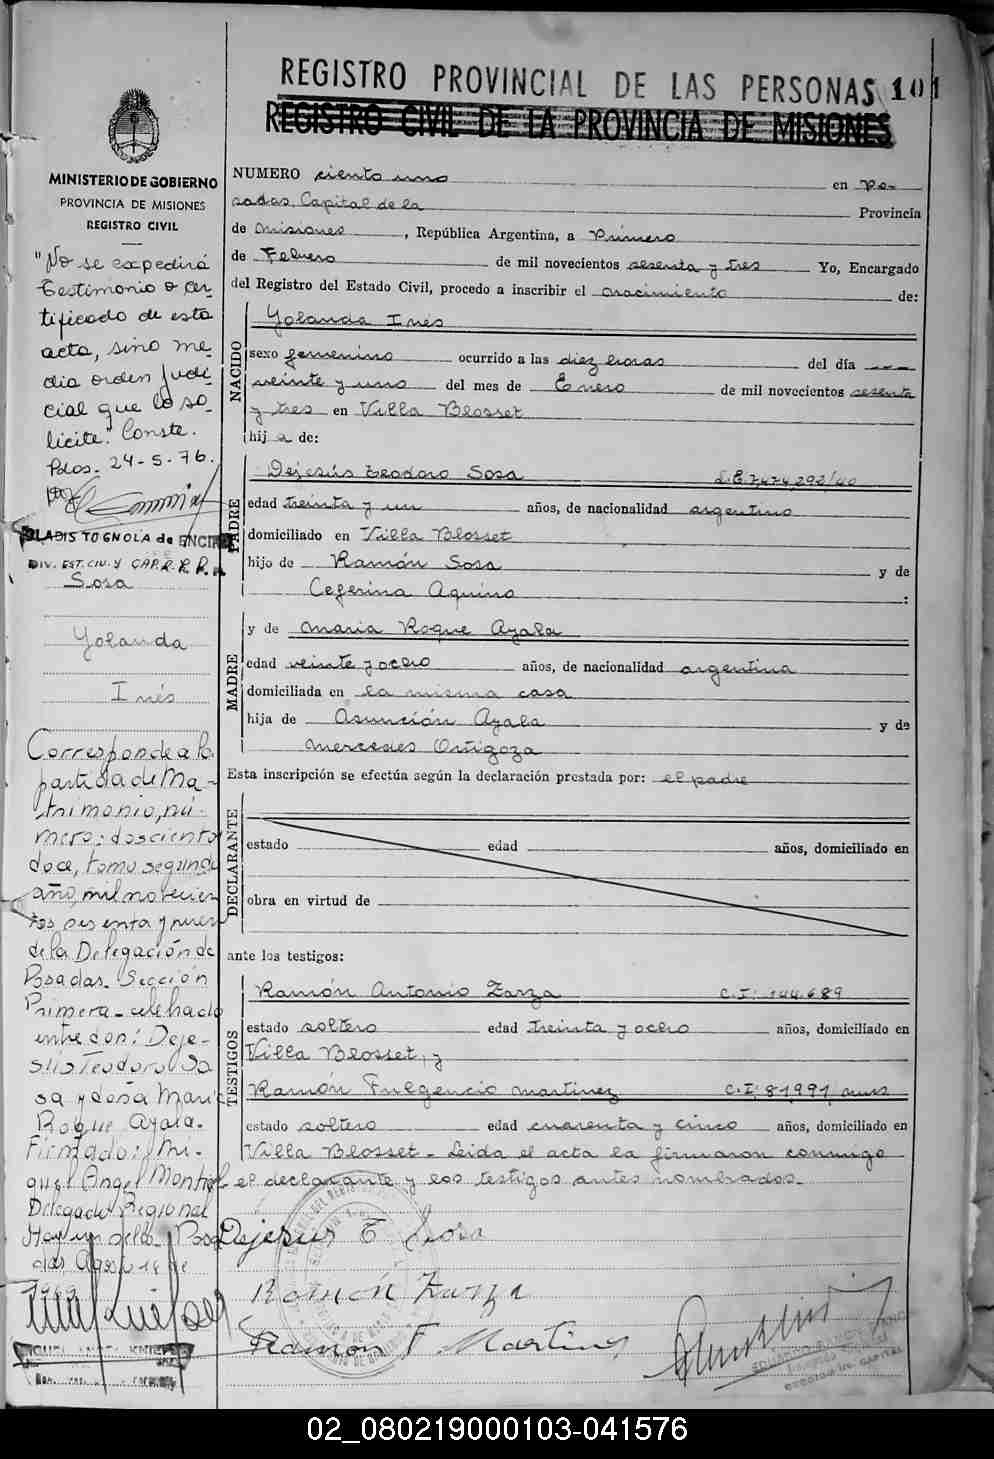 REGISTRO PROVINCIAL DE LAS PERSONAS 101
REGISTRO CIVIL DE LA PROVINCIA DE MISIONES
MINISTERIO DE GOBIERNO
PROVINCIA DE MISIONES
REGISTRO CIVIL
"No se expedirá
testimonio o cer
tificado de esta
acta, sino me
dia orden judi-
cial que lo so-
licite". Conste.
Pdas. 24-5-76.
GLADIS TOGNOLA de ENCIN
DIV. EST. CIV. Y CAP. R. R. P.
Sosa
Yolanda
Inés
Corresponde a la
partida de Ma-
trimonio, nú-
mero: doscientos
doce, tomo segundo
año, mil novecien
tos sesenta y nueve
de la Delegación de
Posadas. Sección
Primera - celebrado
entre don: Deje-
sús Teodoro So
sa y doña María
Roque Ayala.
Firmado: Mi-
guel Angel
Delegado Regional
Hay un sello. Posa
das, Agosto 18 de
1969
NUMERO ciento uno en Po-
sadas, Capital de la Provincia
de Misiones, República Argentina, a Primero
de Febrero de mil novecientos sesenta y tres Yo, Encargado
del Registro del Estado Civil, procedo a inscribir el nacimiento de:
NACIDO
Yolanda Inés
sexo femenino ocurrido a las diez horas del día
veinte y uno del mes de Enero de mil novecientos sesenta
y tres en Villa Blosset
hij a de:
PADRE
Dejesús Teodoro Sosa L.E. 7.474.292/40
edad treinta y un años, de nacionalidad argentino
domiciliado en Villa Blosset
hijo de Ramón Sosa y de
Ceferina Aquino :
MADRE
y de María Roque Ayala
edad veinte y ocho años, de nacionalidad argentina
domiciliada en la misma casa
hija de Asunción Ayala y de
Mercedes Ortigoza
Esta inscripción se efectúa según la declaración prestada por: el padre
DECLARANTE
estado edad años, domiciliado en
obra en virtud de
ante los testigos:
TESTIGOS
Ramón Antonio Zarza C.I. 144.689
estado soltero edad treinta y ocho años, domiciliado en
Villa Blosset, y
Ramón Fulgencio Martinez C.I. 81991
estado soltero edad cuarenta y cinco años, domiciliado en
Villa Blosset - Leida el acta la firmaron conmigo
el declarante y los testigos antes nombrados.
Dejesus T Sosa
Ramón Zarza
Ramon F Martinez
02_080219000103-041576